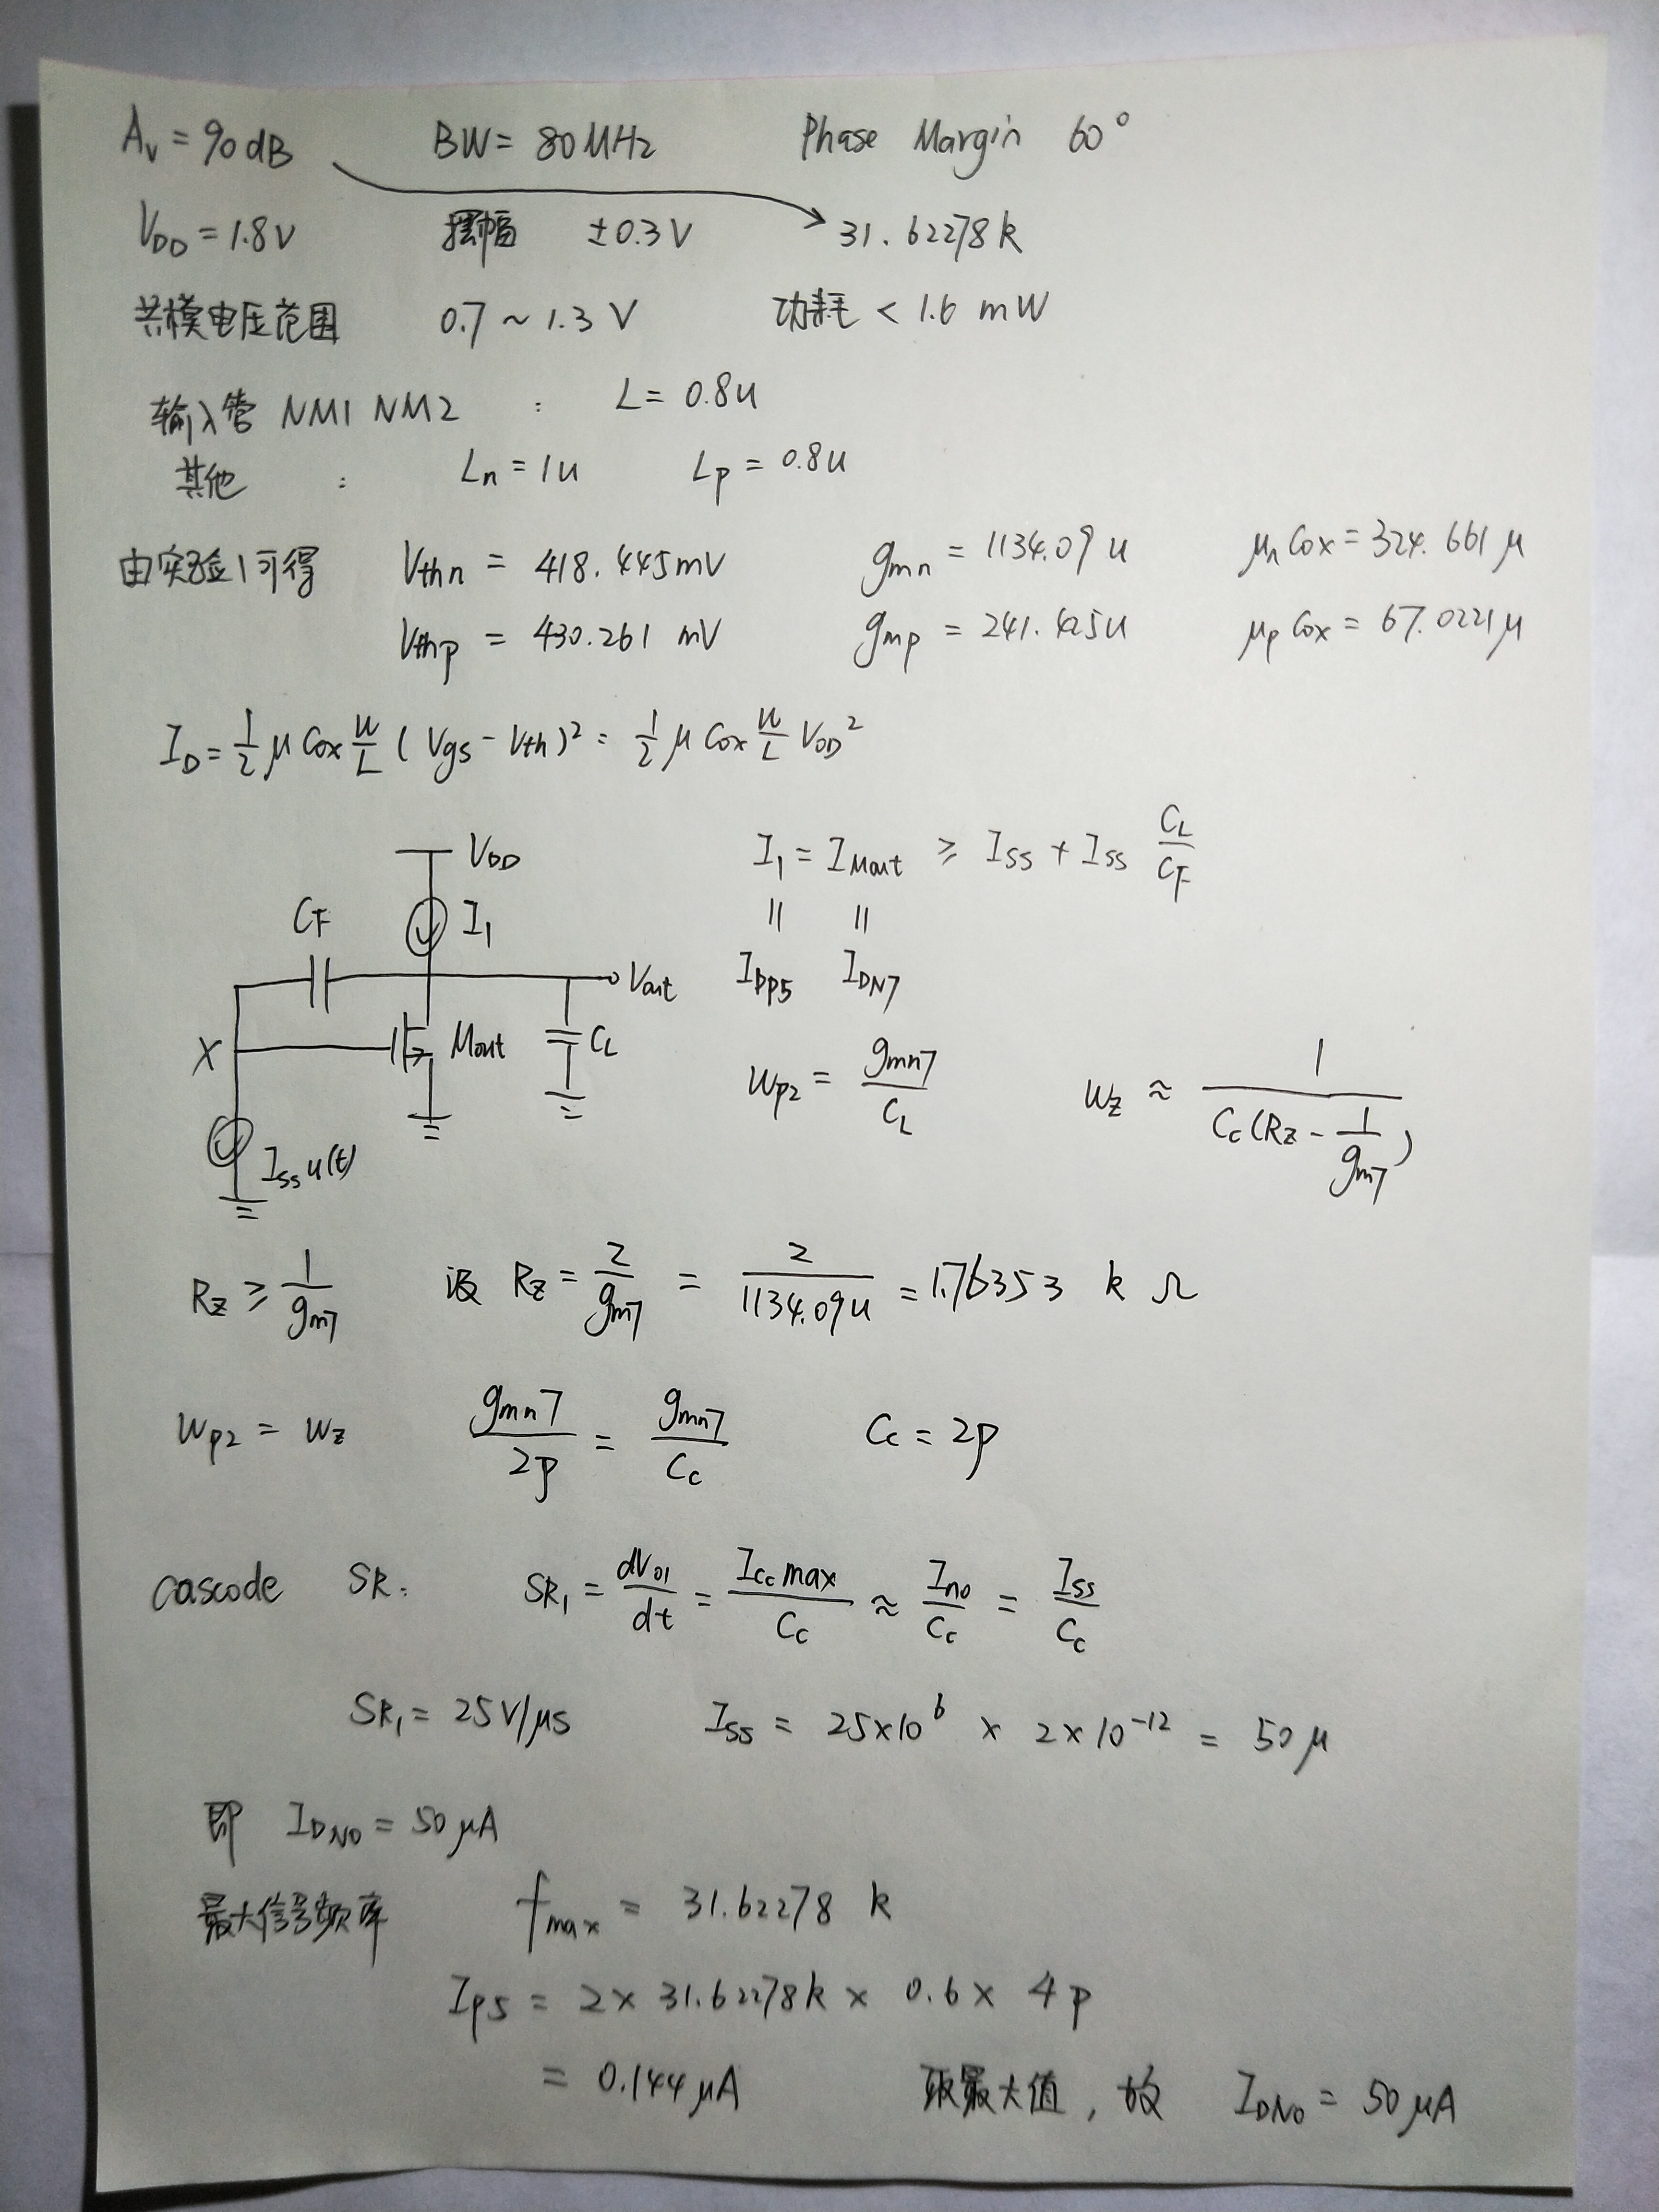 Av = 90 dB BW = 80 MHz Phase Margin 60°
VDD = 1.8V 摆幅 ±0.3V 31.62278 k
共模电压范围 0.7 ~ 1.3 V 功耗 < 1.6 mW
输入管 NM1 NM2 : L = 0.8u
其他 : Ln = 1u Lp = 0.8u
由实验1可得 Vthn = 418.445mV gmn = 1134.09u μnCox = 324.661μ
Vthp = 430.261 mV gmp = 241.425u μpCox = 67.0221μ
ID = 1/2 μCox W/L (Vgs - Vth)² = 1/2 μCox W/L VOD²
VDD
I1 = IMout ≥ ISS + ISS CL/CF
CF I1
॥ ॥
Vout IDP5 IDN7
X Mout CL
ωp2 = gmn7/CL ωz ≈ 1/(Cc(Rz - 1/gm7))
Iss u(t)
Rz ≥ 1/gm7 设 Rz = 2/gm7 = 2/1134.09u = 1.76353 k Ω
ωp2 = ωz gmn7/2p = gmn7/Cc Cc = 2p
cascode SR: SR1 = dVo1/dt = ICc max/Cc ≈ In0/Cc = ISS/Cc
SR1 = 25V/μs ISS = 25×10⁶ × 2×10⁻¹² = 50μ
即 IDN0 = 50μA
最大信号频率 fmax = 31.62278 k
Ip5 = 2× 31.62278k × 0.6× 4p
= 0.144μA 取最大值, 故 IDN0 = 50μA